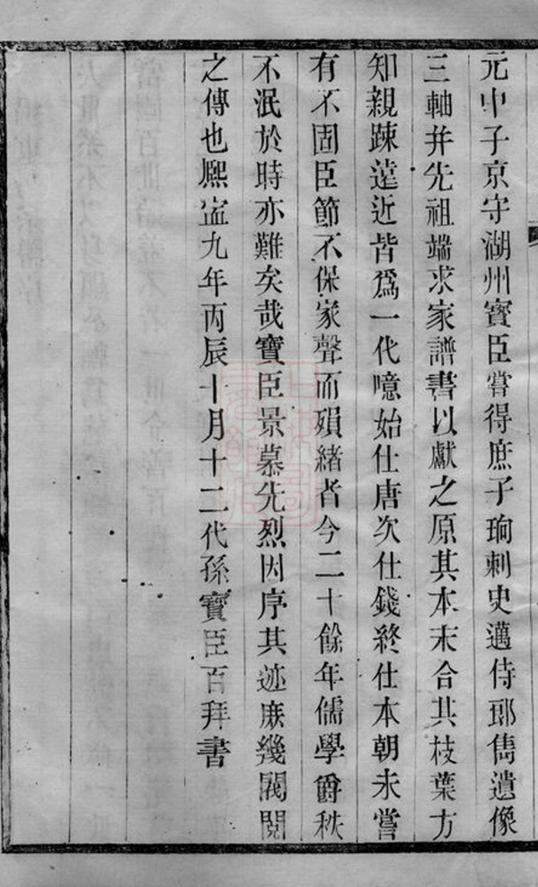 元中子京守湖州寶臣嘗得庶子珣刺史邁侍郎雋遺像
三軸并先祖端求家譜書以獻之原其本末合其枝葉方
知親踈遠近皆爲一代噫始仕唐次仕錢終仕本朝未嘗
有不固臣節不保家聲而殞緒者今二十餘年儒學爵秩
不泯於時亦難矣哉寶臣景慕先烈因序其迹庶幾閥閱
之傳也熈寍九年丙辰十月十二代孫寶臣百拜書